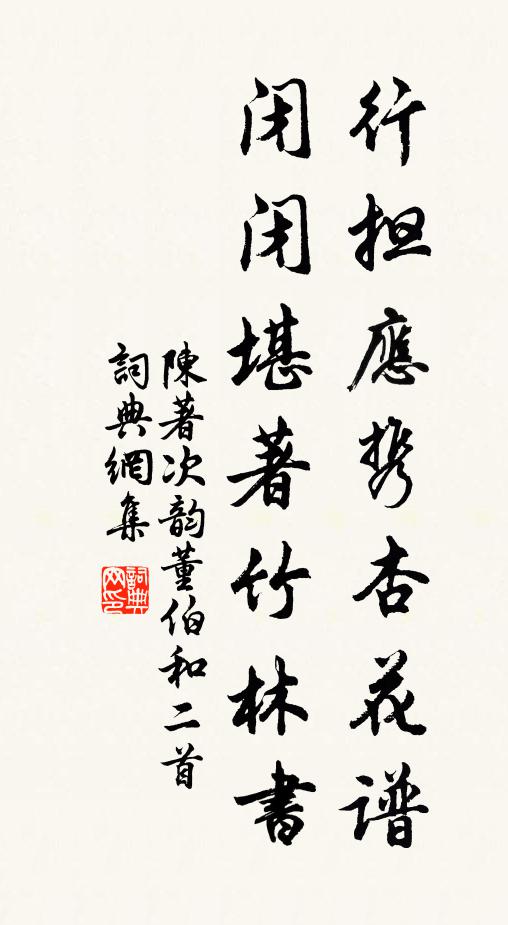 行担應携杏花谱
闭闭堪著竹林書
陳著次韵董伯和二首
詞典網集
詞典
网印